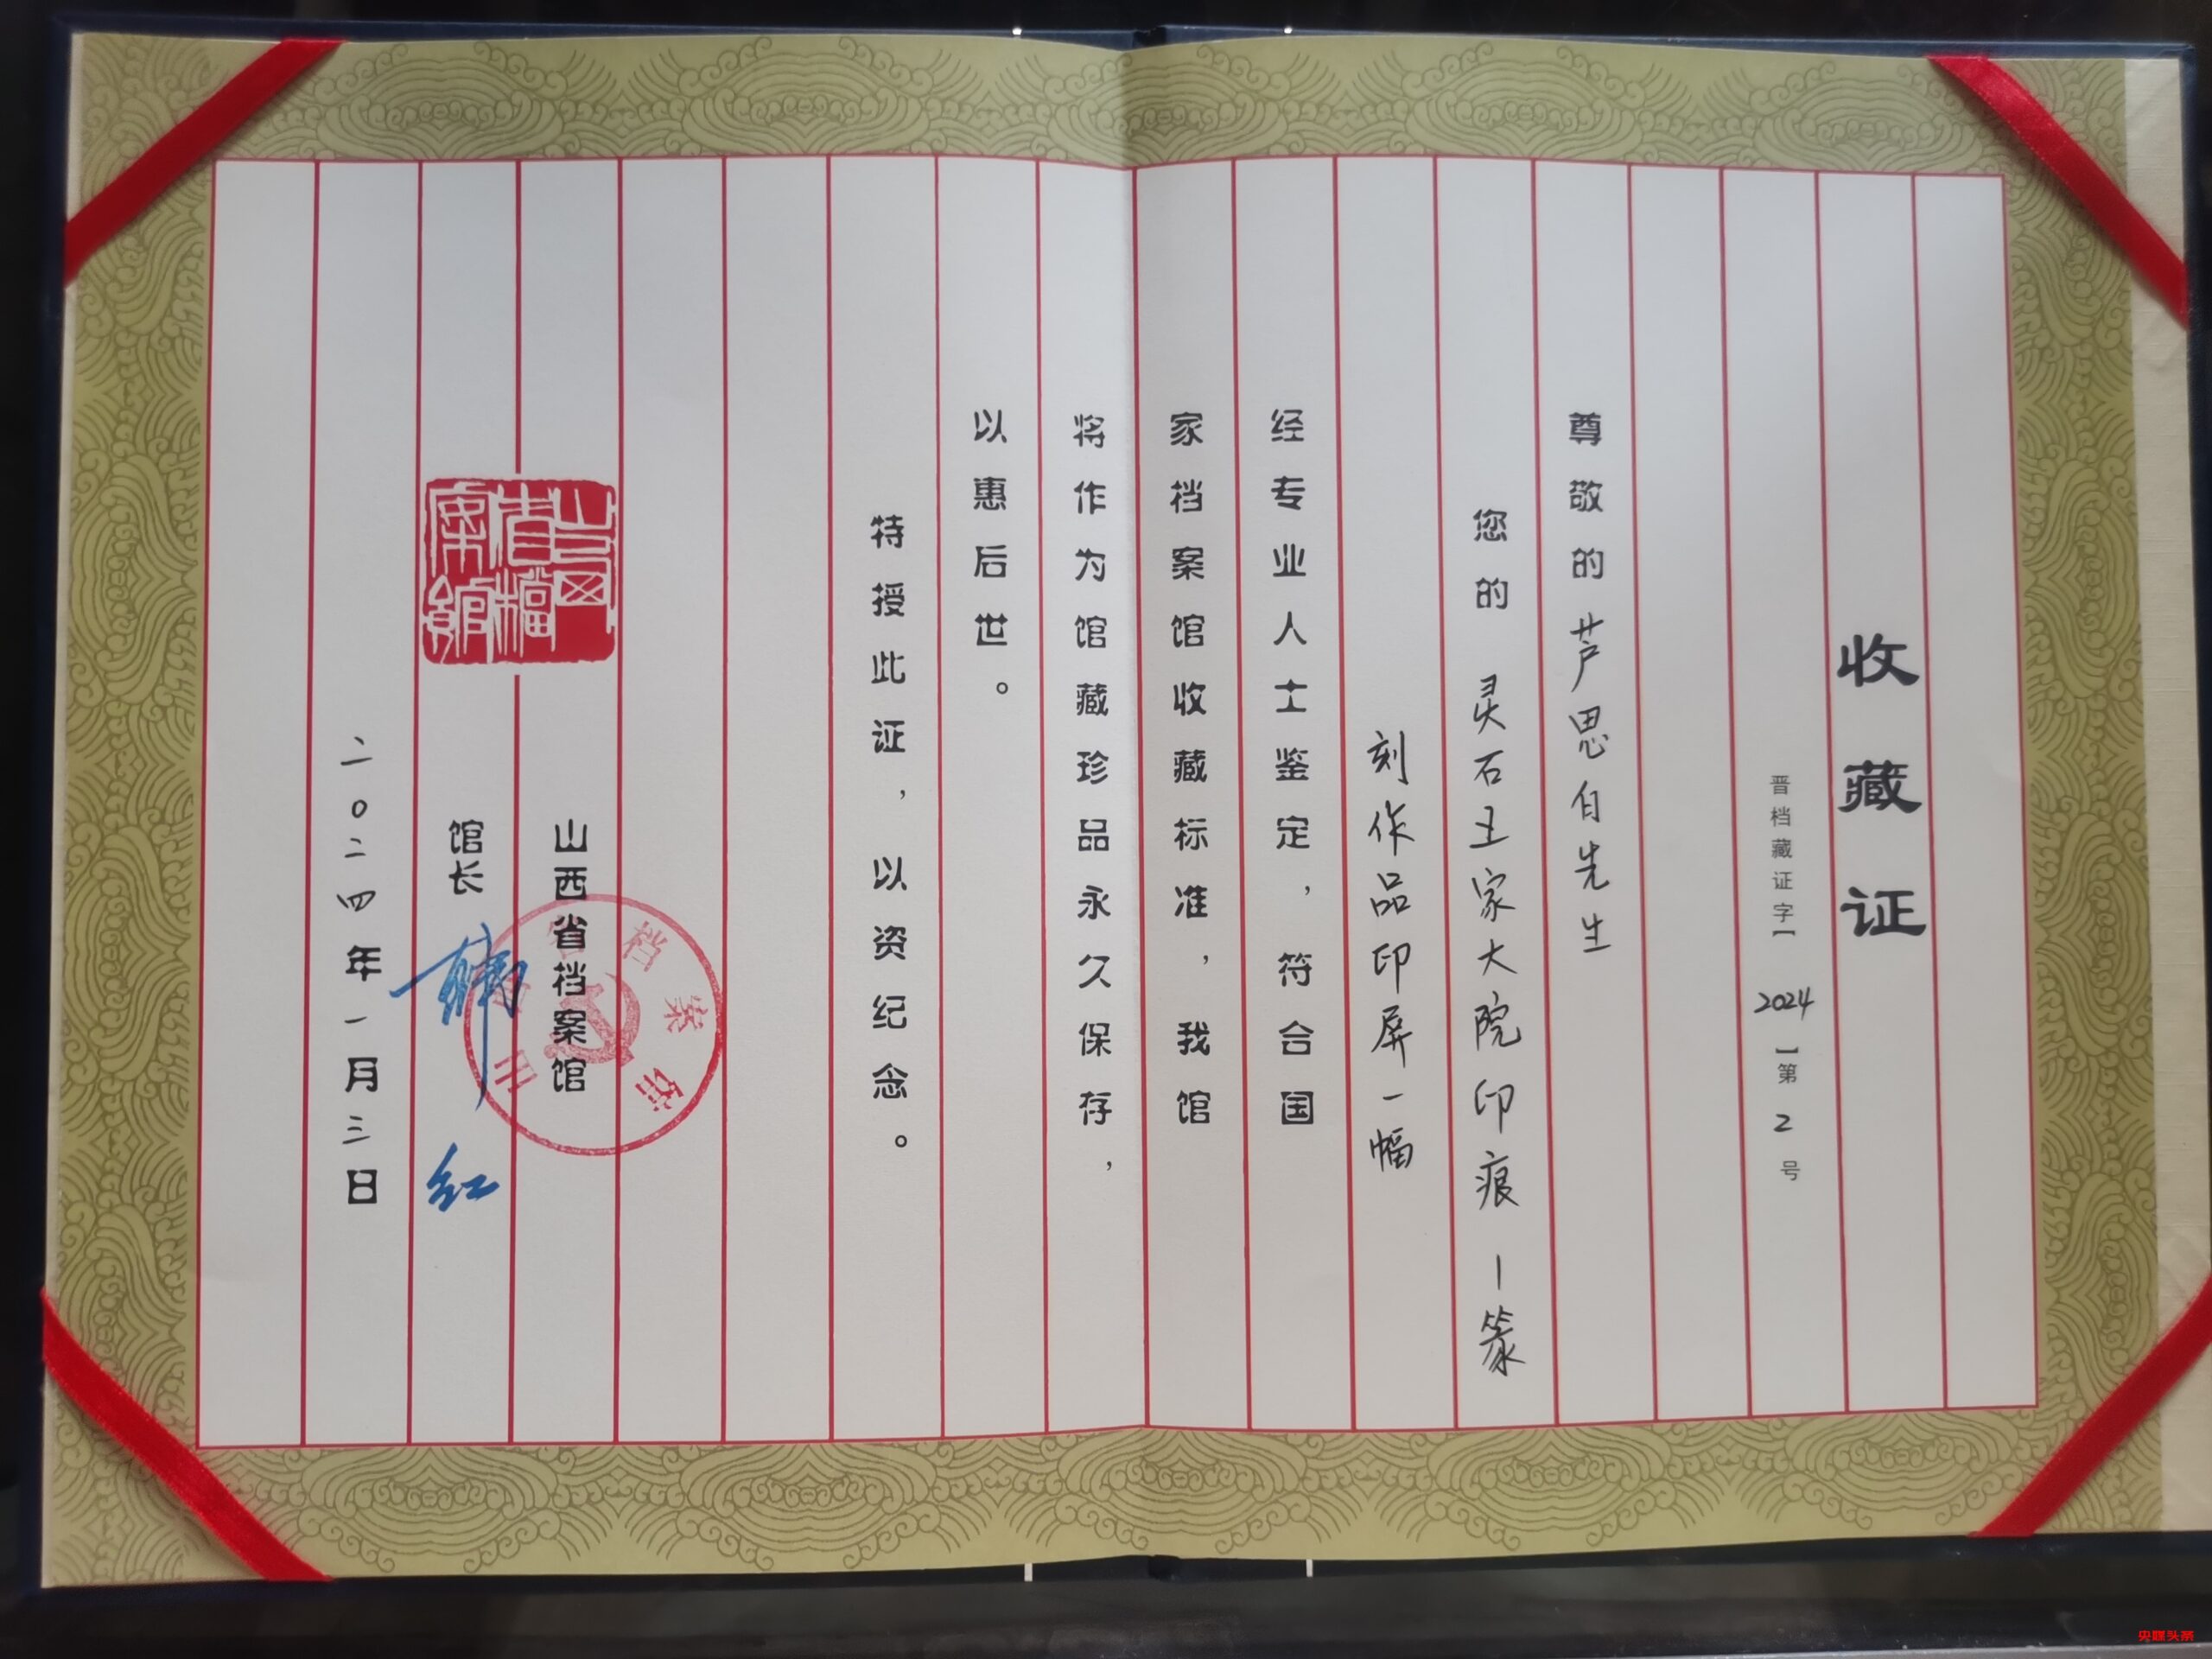 收藏证
晋档藏证字【2024】第2号
尊敬的芦思自先生
您的 灵石王家大院印痕—篆
刻作品印屏一幅
经专业人士鉴定，符合国
家档案馆收藏标准，我馆
将作为馆藏珍品永久保存，
以惠后世。
特授此证，以资纪念。
山西省档案馆
山西省档案馆
馆长 韩红
山西省檔案館
二0二四年一月三日
央媒头条